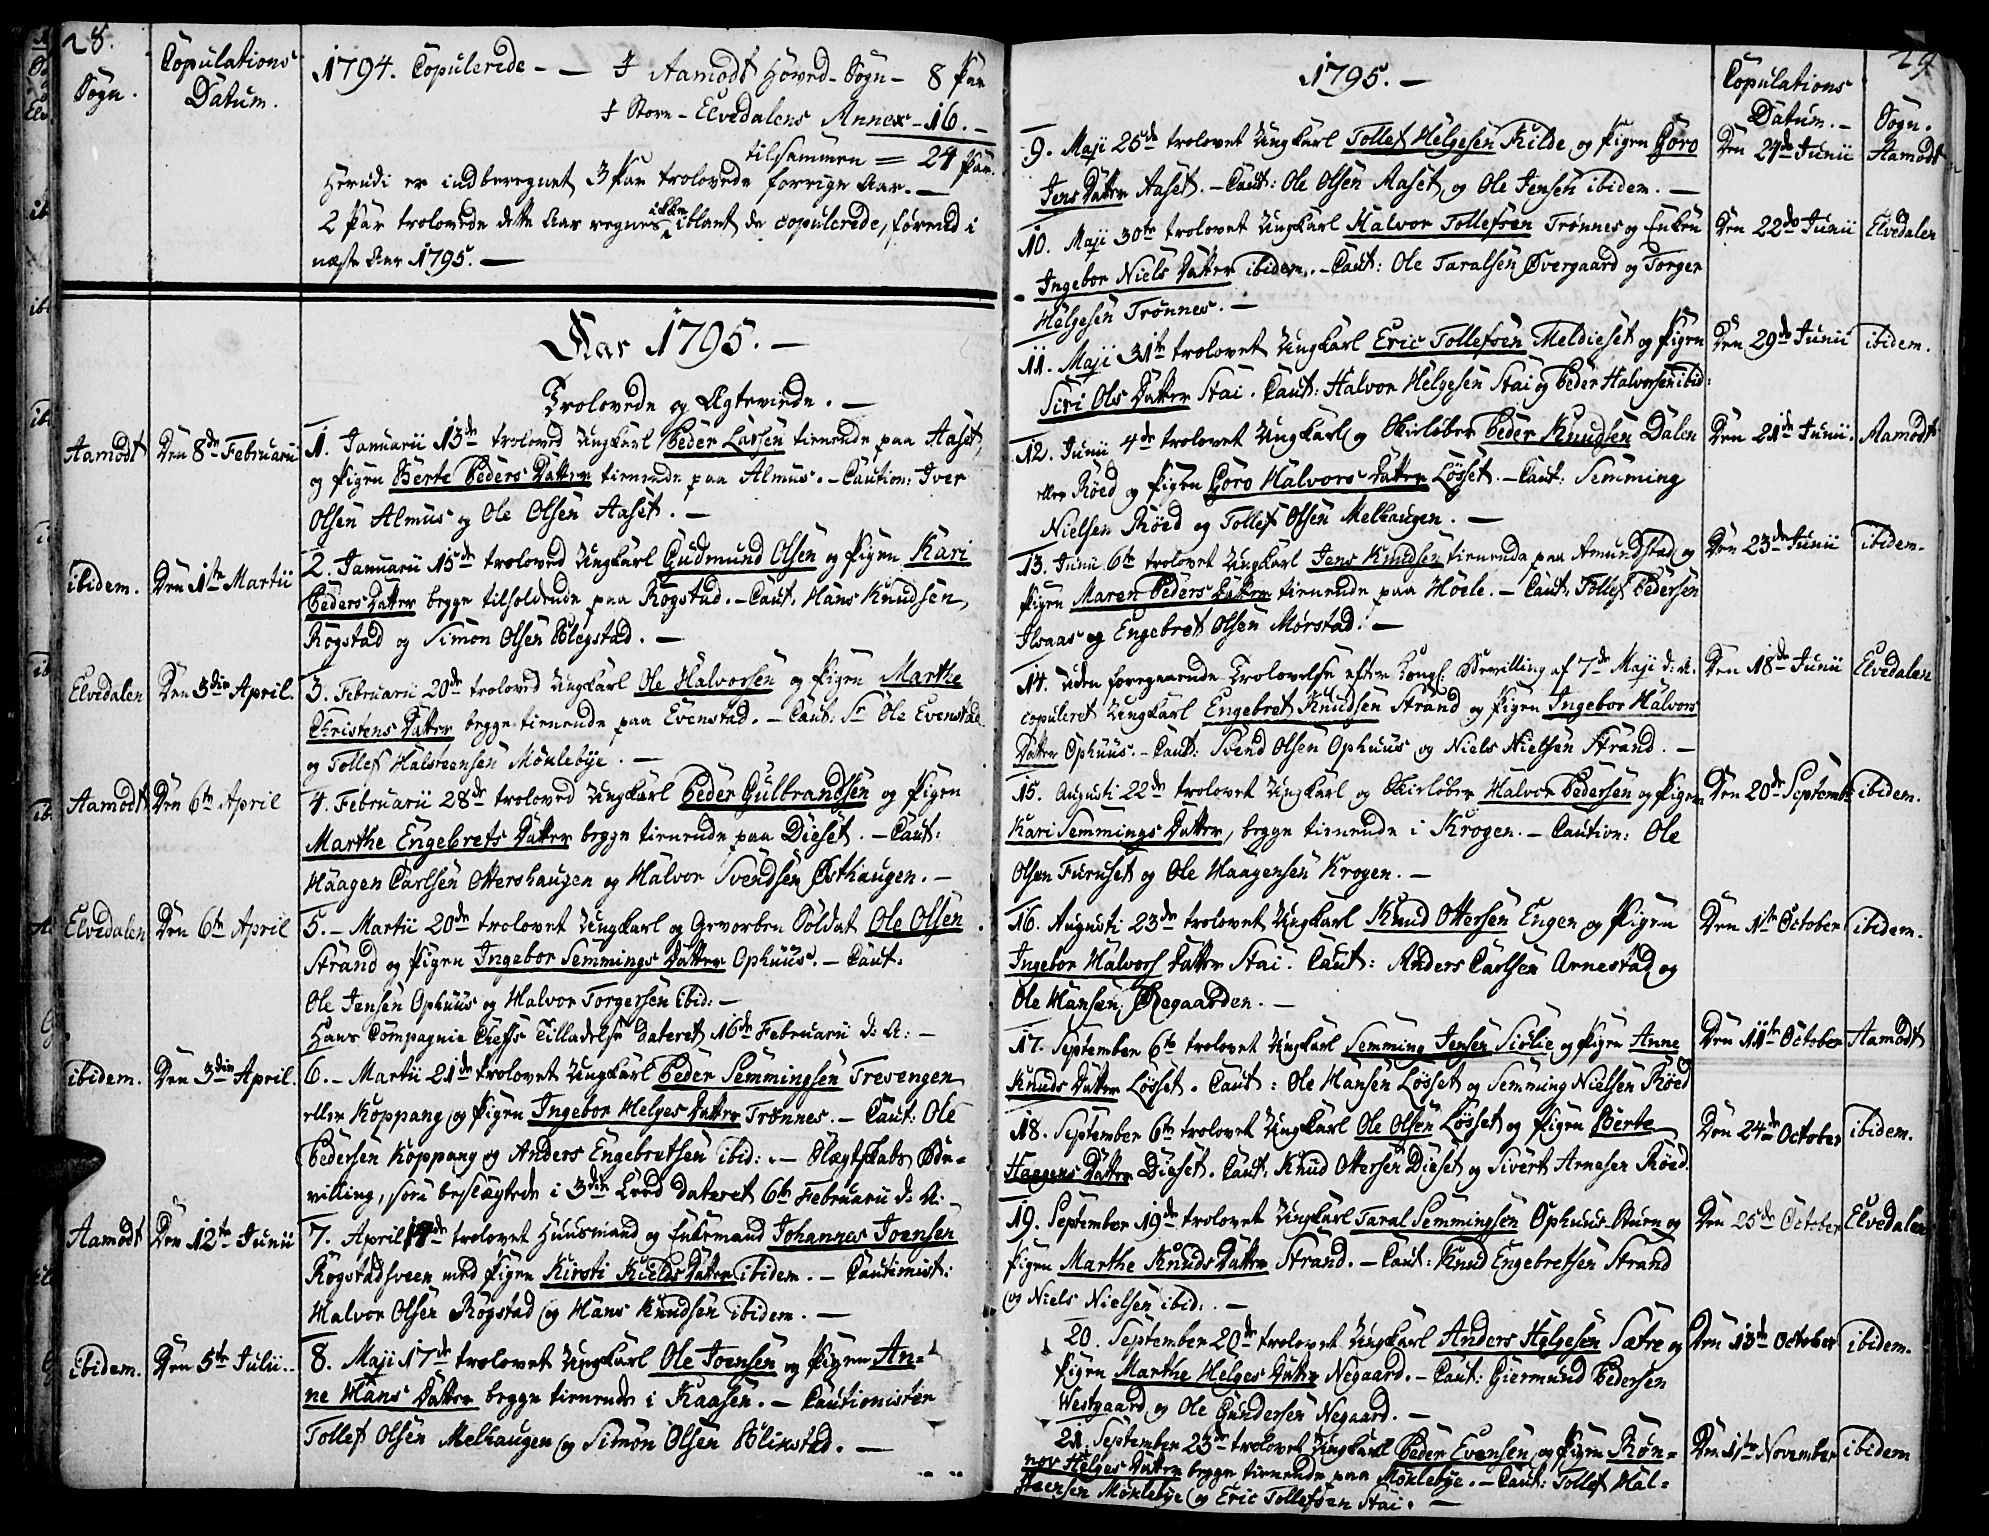 28.
Sogn.
Copulations
Datum.
1794. Copulerede - - I Aamodt Hoved-Sogn - 8 Par
I Store-Elvedalens Annex - 16. -
tilsammen = 24 Par.
Herudi er indberegnet 3 Par trolovede forrige Aar. -
2 Par trolovede dette Aar regnes ikke iblant de copulerede, føres ind i
næste Aar 1795. -
Aar 1795. -
Trolovede og Ægteviede. -
Aamodt Den 8de Februarii
1. Januarii 13de troloved Ungkarl Peder Larsen tienende paa Aaset,
og Pigen Berte Peders Datter tienende paa Almus. - Caution: Iver
Olsen Almus og Ole Olsen Aaset. -
ibidem. Den 1ste Martii
2. Januarii 15de troloved Ungkarl Gudmund Olsen og Pigen Kari
Peders Datter begge tilholdende paa Rogstad. - Caut. Hans Knudsen
Rogstad og Simon Olsen Blegstad. -
Elvedalen Den 3die April.
3. Februarii 20de troloved Ungkarl Ole Halvorsen og Pigen Marthe
Christens Datter begge tienende paa Evenstad. - Caut: Sr Ole Evenstad
og Tollef Halsteensen Møklebye. -
Aamodt Den 6te April
4. Februarii 28de troloved Ungkarl Peder Gulbrandsen og Pigen
Marthe Engebrets Datter begge tienende paa Dieset. - Caut:
Haagen Carlsen Ottershaugen og Halvor Svendsen Østhaugen. -
Elvedalen Den 6te April
5. - Martii 20de trolovet Ungkarl og Gevorben Soldat Ole Olsen
Strand og Pigen Ingebor Semmings Datter Ophuus. - Caut.
Ole Jensen Ophuus og Halvor Torgersen ibid: -
Hans Compagnie Chefs Tilladelse dateret 16de Februarii d: A: -
ibidem. Den 3die April.
6. - Martii 21de trolovet Ungkarl Peder Semmingsen Trevengen
eller Koppang og Pigen Ingebor Helges Datter Trønnes. - Caut: Ole
Pedersen Koppang og Anders Engebretsen ibid: - Slægtskabs Be-
villing, som beslægtede i 3die Leed dateret 6te Februarii d: A: -
Aamodt Den 12te Junii
7. April de trolovet Huusmand og Enkemand Johannes Joensen
Rogstadsveen med Pigen Kirsti Kields Datter ibidem. - Cautionist:
Halvor Olsen Rogstad og Hans Knudsen ibidem. -
ibidem. Den 5te Julii.
8. Maji 17de trolovet Ungkarl Ole Joensen og Pigen An-
ne Hans Datter begge tienende i Kaasen. - Cautionister
Tollef Olsen Melhaugen og Simon Olsen Blikstad. -
29
1795. -
Copulations
Datum. -
Sogn.
9. Maji 25de trolovet Ungkarl Tollef Helgesen Kilde og Pigen Goro
Den 24de Junii Aamodt
Jens Datter Aaset. - Caut: Ole Olsen Aaset, og Ole Jensen ibidem. -
10. Maji 30te trolovet Ungkarl Halvor Tollefsen Trønnes og Enken
Den 22de Junii Elvedalen
Ingebor Niels Datter ibidem. - Caut: Ole Taralsen Øvergaard og Torger
Helgesen Trønnes. -
11. Maji 31te trolovet Ungkarl Eric Tollefsen Meldieset og Pigen
Den 29de Junii ibidem.
Siri Ols Datter Stai. Caut: Halvor Helgesen Stai og Peder Halvorsen ibid:
12. Junii 4de trolovet Ungkarl og Skieløber Peder Knudsen Dalen
Den 21de Junii. Aamodt
eller Røed og Pigen Goro Halvors Datter Løsset. - Caut: Semming
Nielsen Røed og Tollef Olsen Melhaugen. -
13. Junii 6te trolovet Ungkarl Jens Knudsen tienende paa Amundstad og
Den 23de Junii ibidem.
Pigen Maren Peders Datter tienende paa Hoele. - Caut. Tollef Pedersen
Ilvaas og Engebret Olsen Mørstad. -
14. Uden foregaaende Trolovelse efter Kongl: Bevilling af 7de Maji d: A:
Den 18de Junii Elvedalen
copuleret Ungkarl Engebret Knudsen Strand og Pigen Ingebor Halvors
Datter Ophuus. - Caut: Svend Olsen Ophuus og Niels Nielsen Strand. -
15. Augusti 22de trolovet Ungkarl og Skieløber Halvor Pedersen og Pigen
Den 20de Septembr ibidem.
Kari Semmings Datter, begge tienende i Krogen. - Caution: Ole
Olsen Furuset og Ole Haagensen Krogen. -
16. Augusti 23de trolovet Ungkarl Knud Ottersen Engen og Pigen
Den 1ste October ibidem.
Ingebor Halvors Datter Stai. Caut: Anders Carlsen Arnestad og
Ole Hansen Øegaarden. -
17. September 6te trolovet Ungkarl Semming Jensen Siølie og Pigen Anne
Den 11te October Aamodt
Knuds Datter Løsset. Caut: Ole Hansen Løsset og Semming Nielsen Røed
18. September 6te trolovet Ungkarl Ole Olsen Løsset og Pigen Berte
Den 24de October ibidem.
Haagens Datter Dieset. Caut. Knud Ottersen Dieset og Sivert Arnesen Røed.
19. September 19de trolovet Ungkarl Taral Semmingsen Ophuus-Stuen og
Den 25de October Elvedalen
Pigen Marthe Knuds Datter Strand. - Caut: Knud Engebretsen Strand
og Niels Nielsen ibid: -
20. September 20de trolovet Ungkarl Anders Helgesen Sætre og
Den 13de October ibidem.
Pigen Marthe Helges Datter Negaard. - Caut: Giermund Pedersen
Westgaard og Ole Gundersen Negaard. -
21. September 23de trolovet Ungkarl Peder Evensen og Pigen Røn-
Den 11te November ibidem
nov Helges Datter begge tienende paa Moklebye. - Caut: Tollef Hal-
steensen Moklebye og Eric Tollefsen Stai. -